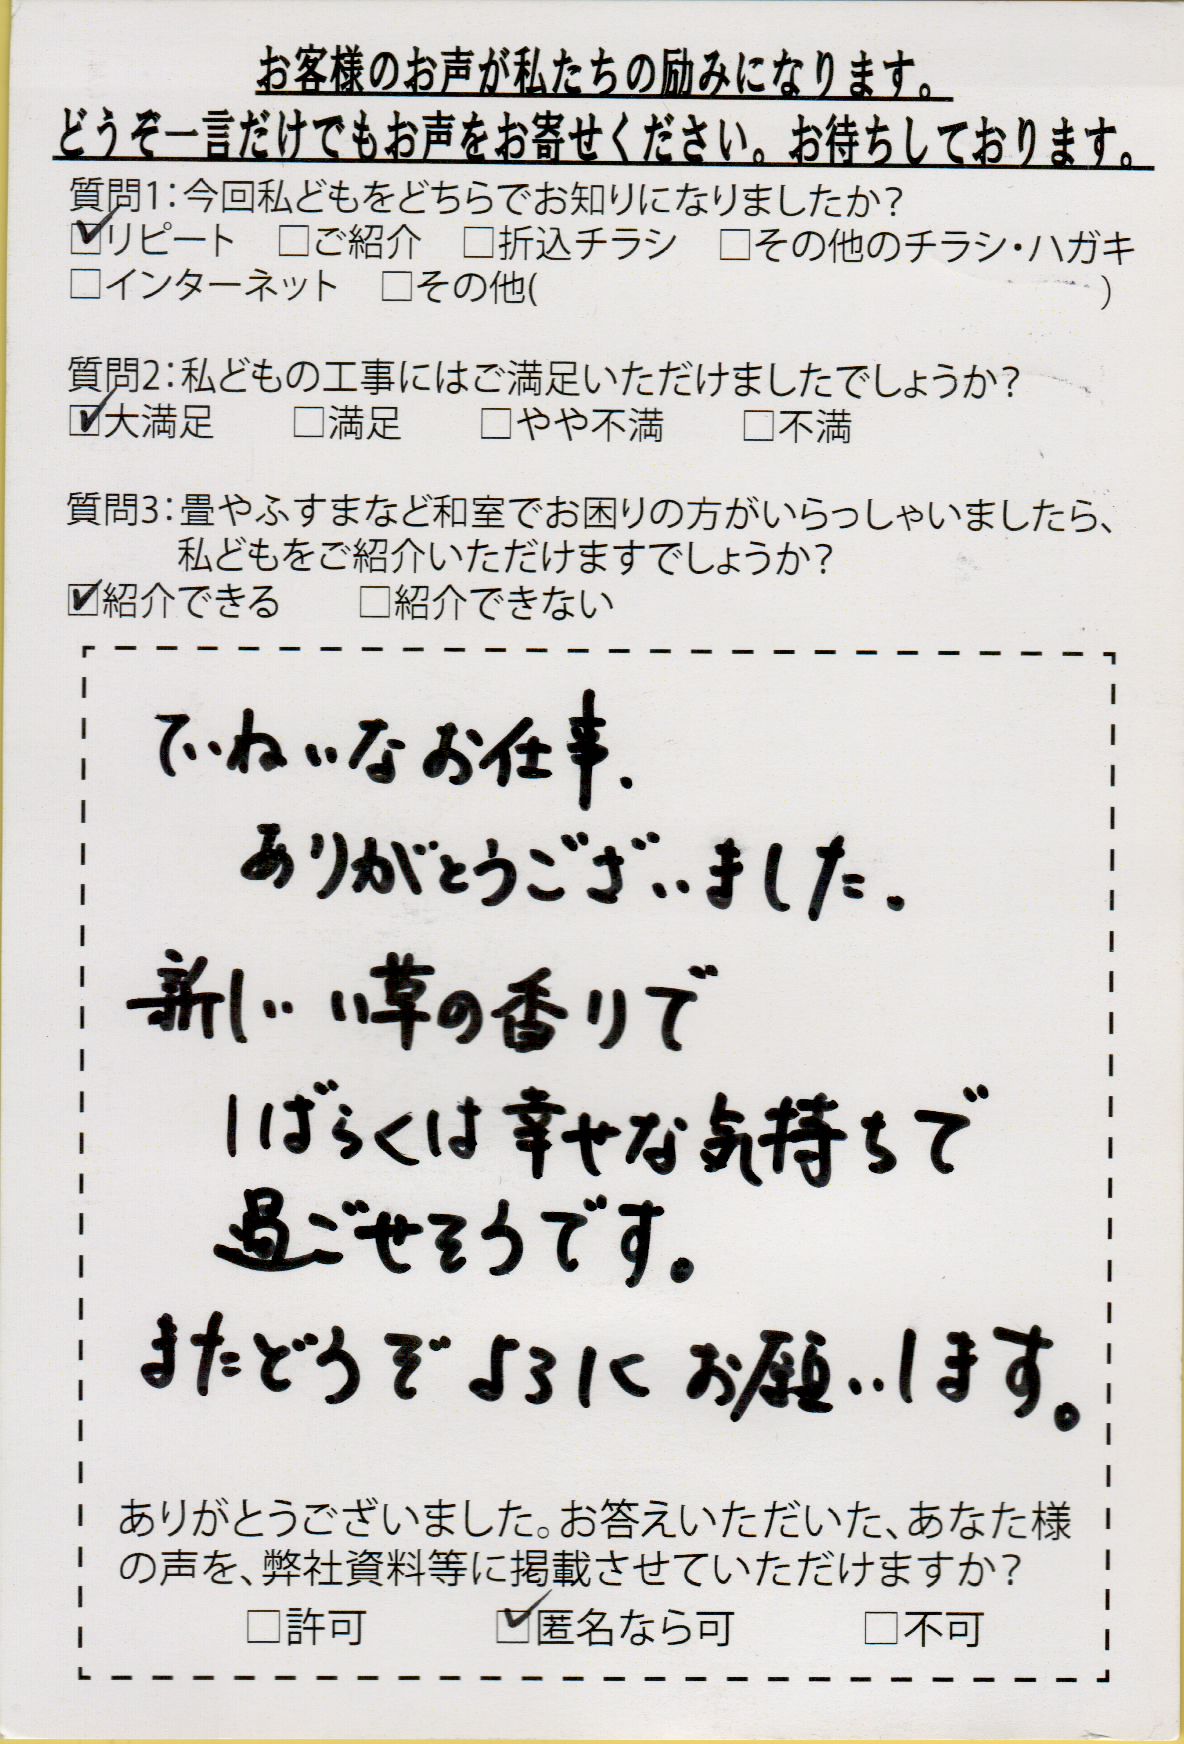 お客様のお声が私たちの励みになります。
どうぞ一言だけでもお声をお寄せください。お待ちしております。
質問1：今回私どもをどちらでお知りになりましたか？
☑リピート □ご紹介 □折込チラシ □その他のチラシ・ハガキ
□インターネット □その他( )
質問2：私どもの工事にはご満足いただけましたでしょうか？
☑大満足 □満足 □やや不満 □不満
質問3：畳やふすまなど和室でお困りの方がいらっしゃいましたら、
私どもをご紹介いただけますでしょうか？
☑紹介できる □紹介できない
ていねいなお仕事、
ありがとうございました。
新しい い草の香りで
しばらくは幸せな気持ちで
過ごせそうです。
またどうぞ よろしく お願いします。
ありがとうございました。お答えいただいた、あなた様
の声を、弊社資料等に掲載させていただけますか？
□許可 ☑匿名なら可 □不可